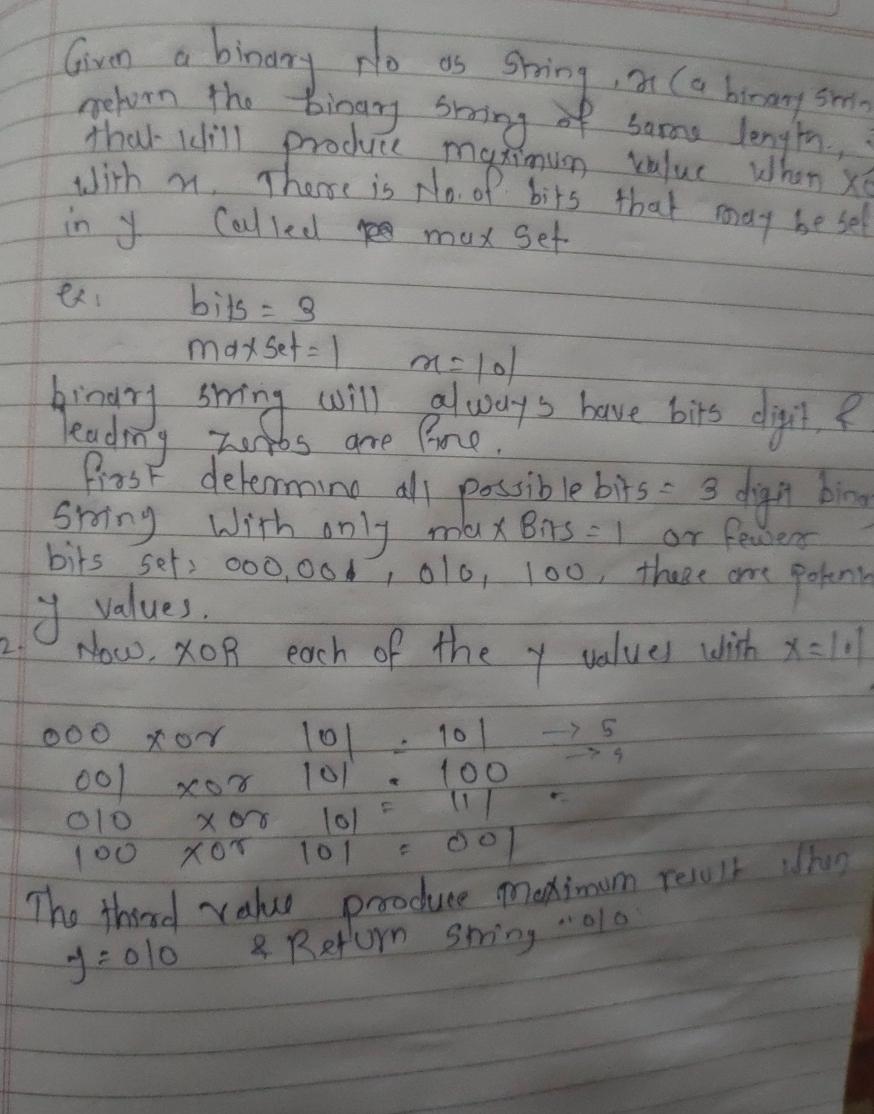 Given a binary No as String, x (a binary strin
return the binary string of same length,
that will produce maximum value when xo
with x. There is No. of bits that may be set
in y Called max Set.
ex: bits = 3
maxSet = 1 x = 101
binary string will always have bits digit, &
leading zeros are fine.
first determine all possible bits = 3 digit bina
String With only max Bits = 1 or fewer
bits set: 000, 001, 010, 100, these are potenti
y values.
2. Now, XOR each of the y values with x = 101
000 xor 101 = 101 → 5
001 xor 101 = 100 → 4
010 xor 101 = 111
100 xor 101 = 001
The third value produce maximum result when
y = 010 & Return string "010